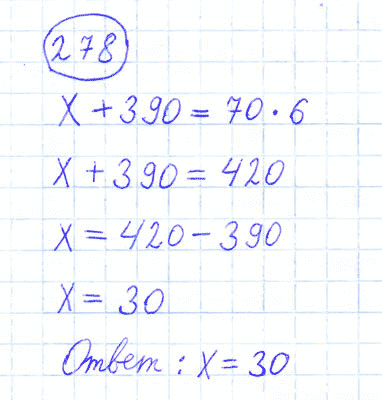 278
x + 390 = 70 · 6
x + 390 = 420
x = 420 - 390
x = 30
Ответ : x = 30